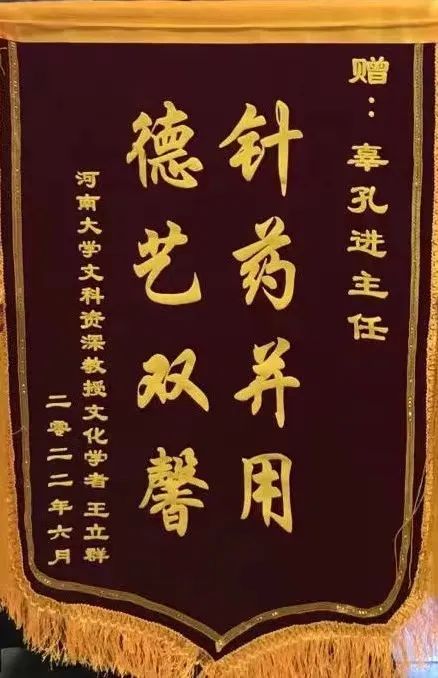 赠：辜孔进主任
针药并用
德艺双馨
河南大学文科资深教授文化学者王立群
二零二二年六月